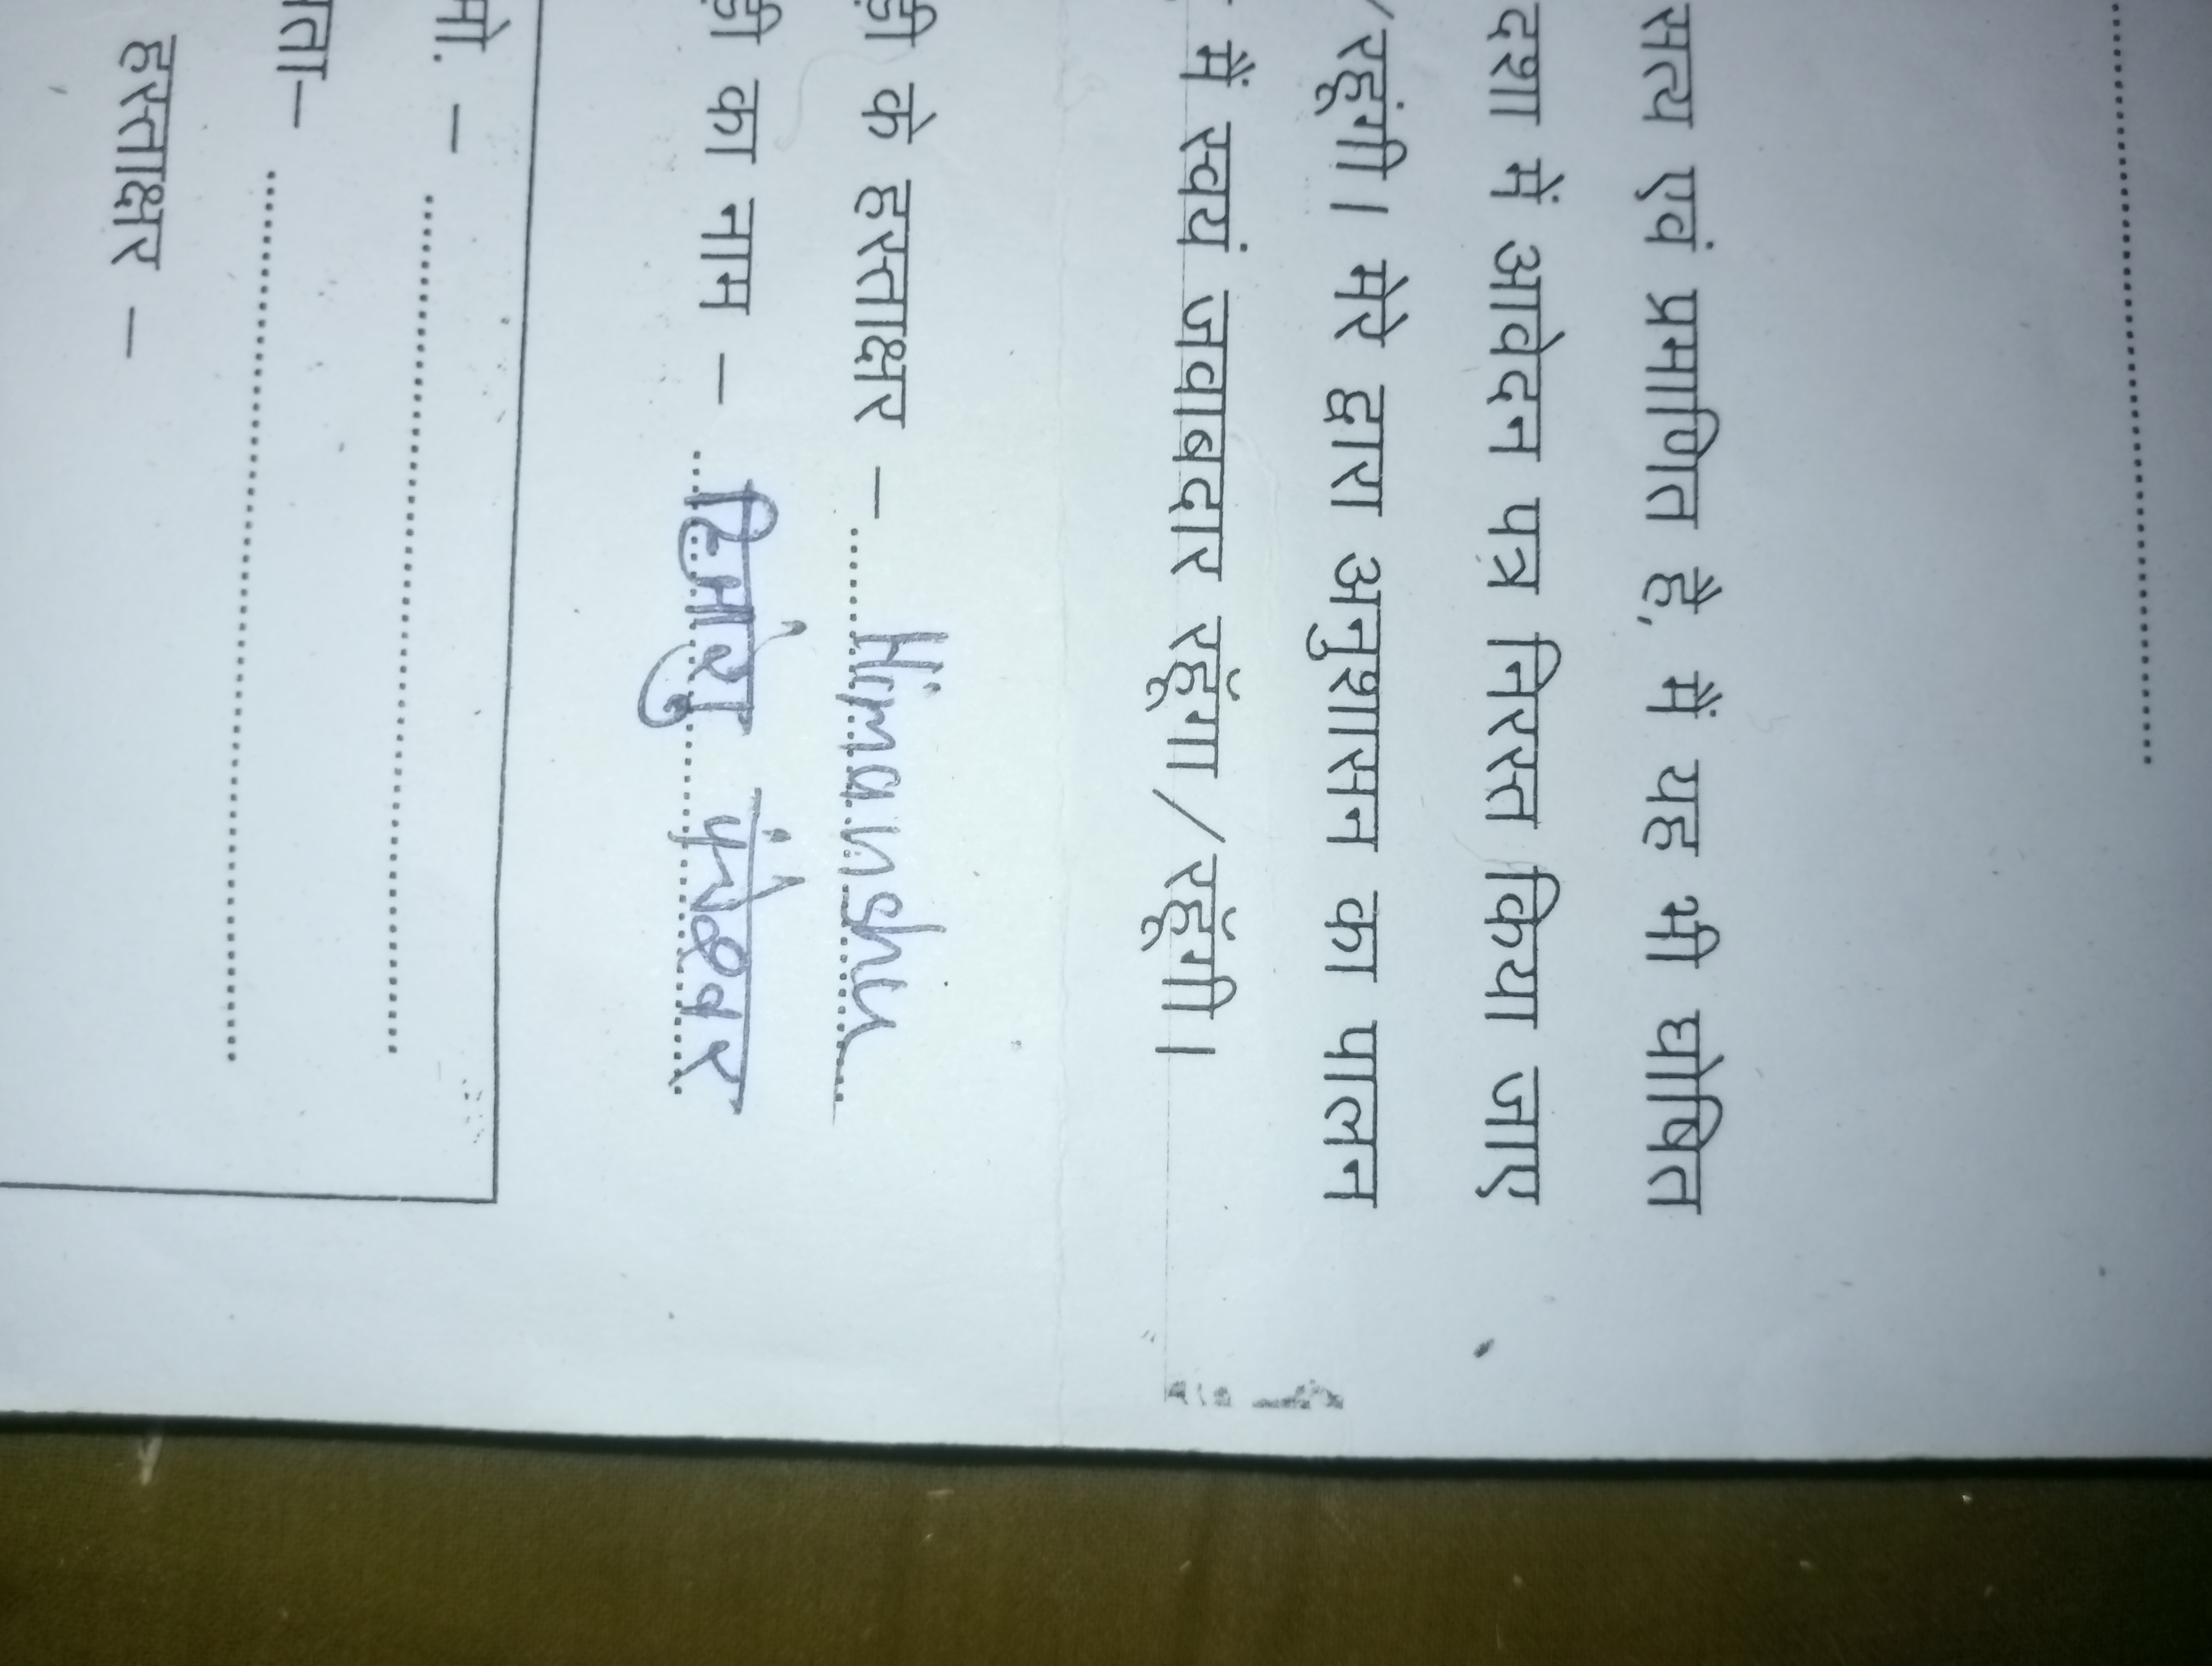 सत्य एवं प्रमाणित है, मैं यह भी घोषित
दशा में आवेदन पत्र निरस्त किया जाए
/रहूंगी। मेरे द्वारा अनुशासन का पालन
मैं स्वयं जवाबदार रहूँगा/रहूँगी।
ड़ी के हस्ताक्षर – Himanshu
ड़ी का नाम – हिमांशु पंनेश्वर
मो. –
ता–
हस्ताक्षर –